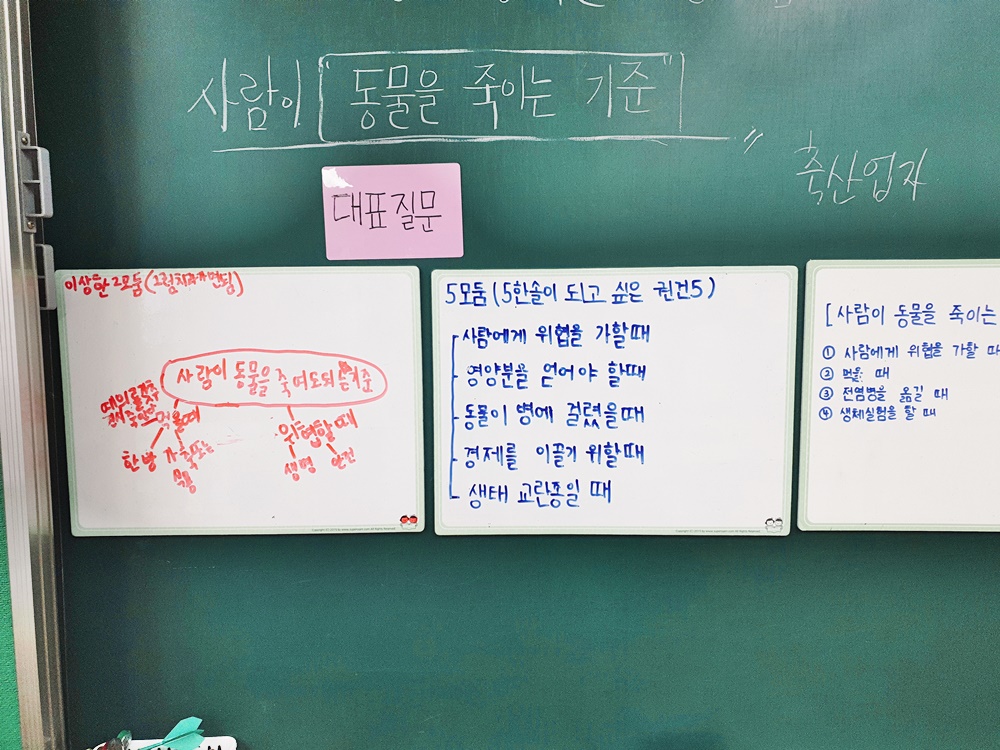 사람이 "동물을 죽이는 기준"
축산업자
대표질문
이상한 2모둠(그럼치과가면됨)
사람이 동물을 죽여도되는기준
먹을때
한방
가축또는
위협할때
생명 안전
5모둠(5한솔이 되고 싶은 권건5)
사람에게 위협을 가할때
영양분을 얻어야 할때
동물이 병에 걸렸을때
경제를 이끌기 위할때
생태 교란종일 때
[사람이 동물을 죽이는
① 사람에게 위협을 가할 때
② 먹을 때
③ 전염병을 옮길 때
④ 생체실험을 할 때